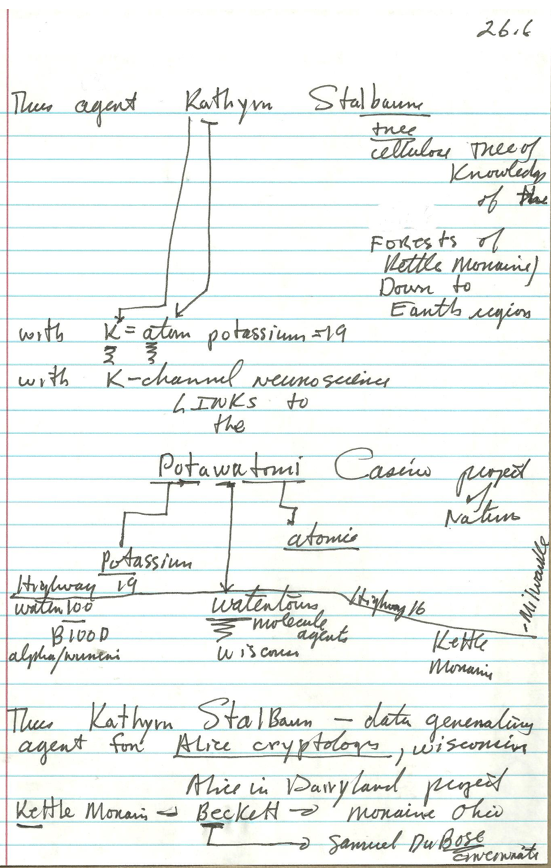 26.6
Thus agent Kathyrn Stalbaum
tree
cellulose tree of
Knowledge
of the
Forests of
Kettle Moraine)
Down to
Earth region
with K = atom potassium = 19
with K-channel neuroscience
LINKS to
the
Potawatomi Casino project
of
Nature
atomic
Potassium
19
Highway
water 100
BlOOD
alpha/numeri
Watertown
molecule
agents
Wiscons
Highway 16
Kettle
Morain
-Milwaukee
Thus Kathyrn StalBaum - data generating
agent for Alice cryptology, wisconsin
Alice in Dairyland project
Kettle Morain → Beckett → moraine Ohio
Samuel DuBOSE
cincinnati